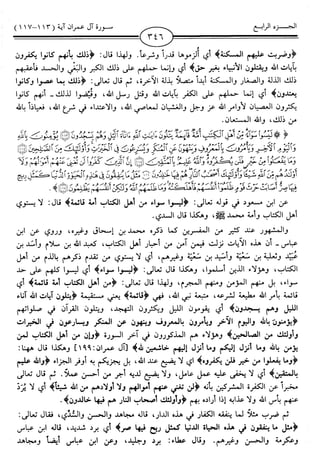 الجزء الرابع
٣٤٦
سورة آل عمران آية (١١٣-١١٧)
﴿وضربت عليهم المسكنة﴾ أي ألزموها قدراً وشرعاً. ولهذا قال: ﴿ذلك بأنهم كانوا يكفرون
بآيات الله ويقتلون الأنبياء بغير حق﴾ أي وإنما حملهم على ذلك الكبر والبغي والحسد فأعقبهم
ذلك الذلة والصغار والمسكنة أبداً متصلاً بذلة الآخرة، ثم قال تعالى: ﴿ذلك بما عصوا وكانوا
يعتدون﴾ أي إنما حملهم على الكفر بآيات الله وقتل رسل الله، وقيضوا لذلك ـ أنهم كانوا
يكثرون العصيان لأوامر الله عز وجل والغشيان لمعاصي الله، والاعتداء في شرع الله، فعياذاً بالله
من ذلك، والله المستعان.
﴿ ۞ لَيْسُوا سَوَاءً مِنْ أَهْلِ الْكِتَابِ أُمَّةٌ قَائِمَةٌ يَتْلُونَ آيَاتِ اللَّهِ آنَاءَ اللَّيْلِ وَهُمْ يَسْجُدُونَ ۝ يُؤْمِنُونَ بِاللَّهِ
وَالْيَوْمِ الْآخِرِ وَيَأْمُرُونَ بِالْمَعْرُوفِ وَيَنْهَوْنَ عَنِ الْمُنْكَرِ وَيُسَارِعُونَ فِي الْخَيْرَاتِ وَأُولَئِكَ مِنَ الصَّالِحِينَ ۝
وَمَا يَفْعَلُوا مِنْ خَيْرٍ فَلَنْ يُكْفَرُوهُ وَاللَّهُ عَلِيمٌ بِالْمُتَّقِينَ ۝ إِنَّ الَّذِينَ كَفَرُوا لَنْ تُغْنِيَ عَنْهُمْ أَمْوَالُهُمْ وَلَا
أَوْلَادُهُمْ مِنَ اللَّهِ شَيْئًا وَأُولَئِكَ أَصْحَابُ النَّارِ هُمْ فِيهَا خَالِدُونَ ۝ مَثَلُ مَا يُنْفِقُونَ فِي هَذِهِ الْحَيَاةِ الدُّنْيَا كَمَثَلِ رِيحٍ
فِيهَا صِرٌّ أَصَابَتْ حَرْثَ قَوْمٍ ظَلَمُوا أَنْفُسَهُمْ فَأَهْلَكَتْهُ وَمَا ظَلَمَهُمُ اللَّهُ وَلَكِنْ أَنْفُسَهُمْ يَظْلِمُونَ ۝﴾
عن ابن مسعود في قوله تعالى: ﴿ليسوا سواء من أهل الكتاب أمة قائمة﴾ قال: لا يستوي
أهل الكتاب وأمة محمد ﷺ، وهكذا قال السدي.
والمشهور عند كثير من المفسرين كما ذكره محمد بن إسحاق وغيره، وروي عن ابن
عباس ـ أن هذه الآيات نزلت فيمن آمن من أحبار أهل الكتاب، كعبد الله بن سلام وأسد بن
عُبيد وثعلبة بن سَعْية وأسيد بن سَعْية وغيرهم، أي لا يستوي من تقدم ذكرهم بالذم من أهل
الكتاب، وهؤلاء الذين أسلموا، وهكذا قال تعالى: ﴿ليسوا سواء﴾ أي ليسوا كلهم على حد
سواء، بل منهم المؤمن ومنهم المجرم، ولهذا قال تعالى: ﴿من أهل الكتاب أمة قائمة﴾ أي
قائمة بأمر الله مطيعة لشرعه، متبعة نبي الله، فهي ﴿قائمة﴾ يعني مستقيمة ﴿يتلون آيات الله آناء
الليل وهم يسجدون﴾ أي يقومون الليل ويكثرون التهجد، ويتلون القرآن في صلواتهم
﴿يؤمنون بالله واليوم الآخر ويأمرون بالمعروف وينهون عن المنكر ويسارعون في الخيرات
وأولئك من الصالحين﴾ وهؤلاء هم المذكورون في آخر السورة ﴿وإن من أهل الكتاب لمن
يؤمن بالله وما أنزل إليكم وما أنزل إليهم خاشعين لله﴾ [آل عمران: ١٩٩] وهكذا قال ههنا:
﴿وما يفعلوا من خير فلن يكفروه﴾ أي لا يضيع عند الله، بل يجزيكم به أوفر الجزاء ﴿والله عليم
بالمتقين﴾ أي لا يخفى عليه عمل عامل، ولا يضيع لديه أجر من أحسن عملاً. ثم قال تعالى
مخبراً عن الكفرة المشركين بأنه ﴿لن تغني عنهم أموالهم ولا أولادهم من الله شيئاً﴾ أي لا يُرَدّ
عنهم بأس الله ولا عذابه إذا أراده بهم ﴿وأولئك أصحاب النار هم فيها خالدون﴾.
ثم ضرب مثلاً لما ينفقه الكفار في هذه الدار، قاله مجاهد والحسن والسُّدّي، فقال تعالى:
﴿مثل ما ينفقون في هذه الحياة الدنيا كمثل ريح فيها صر﴾ أي برد شديد، قاله ابن عباس
وعكرمة والحسن وغيرهم. وقال عطاء: برد وجليد، وعن ابن عباس أيضاً ومجاهد